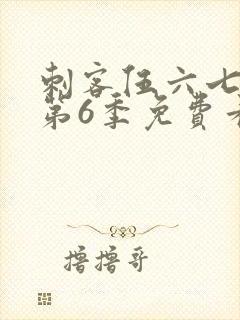 刺客伍六七
第6季免費
撸撸哥